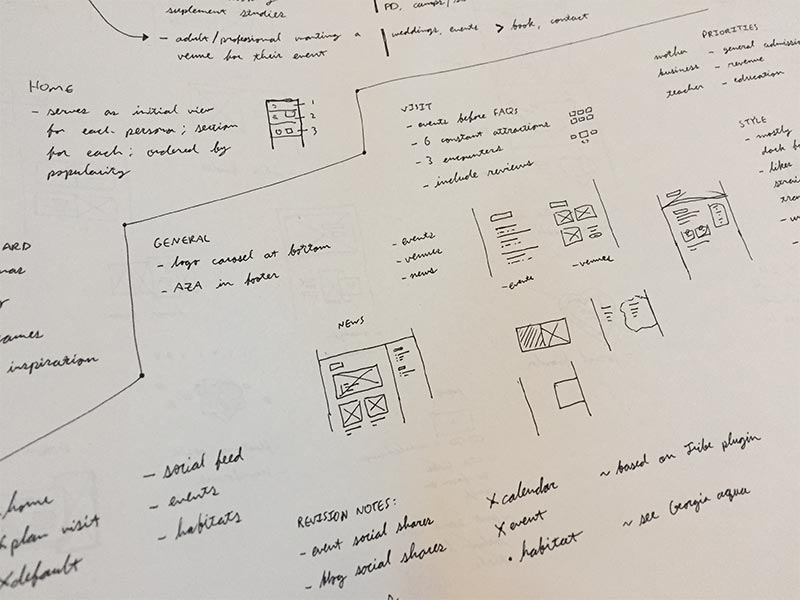 suplement studies
- adult/profesional wanting a
venue for their event
PD, camps/
weddings, events > book, contact
PRIORITIES
mother - general admission
business - revenue
teacher - education
HOME
- serves as initial view
for each persona; section
for each; ordered by
popularity
1
2
3
VISIT
- events before FAQs
- 6 constant attractions
- 3 encounters
- include reviews
STYLE
- mostly
dark
- likes
GENERAL
- logo carosel at bottom
- AZA in footer
- events
- venues
- news
- events
- venues
ARD
games
inspiration
NEWS
home
x plan visit
x default
- social feed
- events
- habitats
REVISION NOTES:
- event social shares
- blog social shares
x calendar ~ based on Tribe plugin
x event
• habitat ~ see Georgia aqua